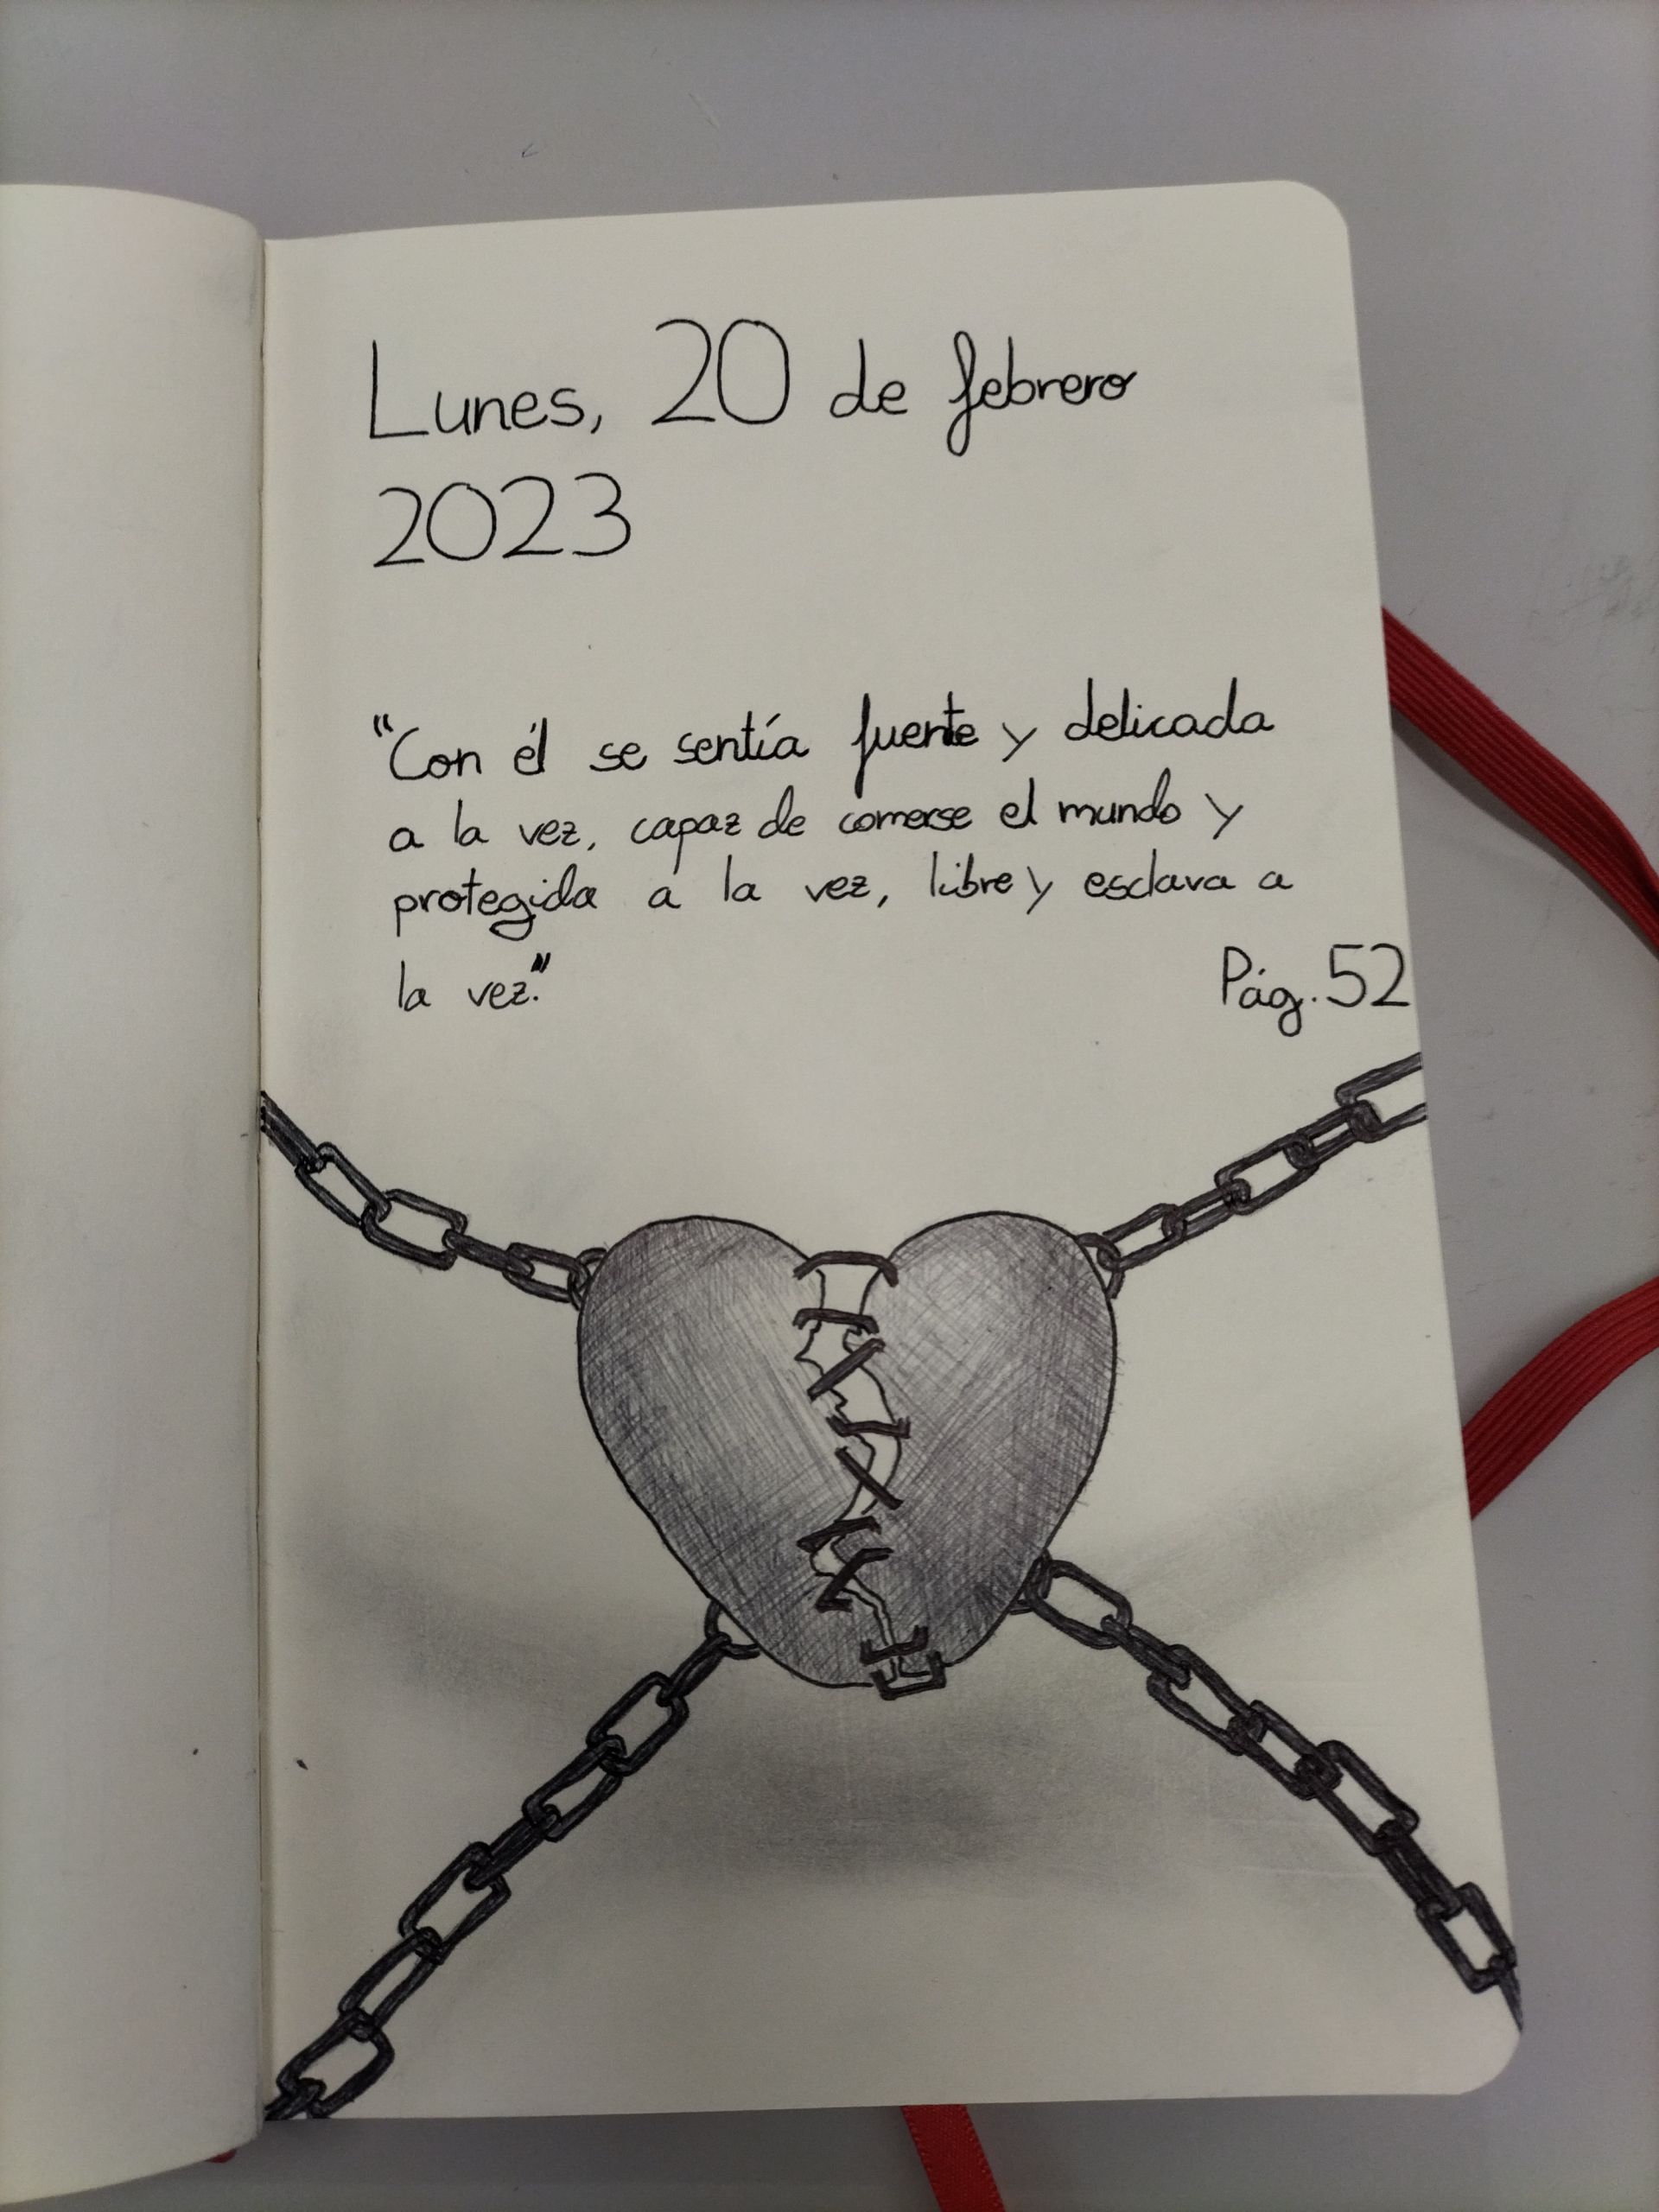 Lunes, 20 de febrero
2023
"Con él se sentía fuerte y delicada
a la vez, capaz de comerse el mundo y
protegida a la vez, libre y esclava a
la vez."
Pág. 52